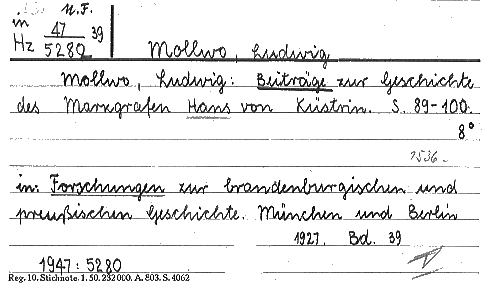 N.F.
in 47 39
Hz 5280
Mollwo, Ludwig
Mollwo, Ludwig: Beiträge zur Geschichte
des Markgrafen Hans von Küstrin. S. 89-100.
8°
1536-
in: Forschungen zur brandenburgischen und
preußischen Geschichte. München und Berlin
1927. Bd. 39
1947:5280
Reg. 10. Stichnote. 1. 50. 232000. A. 803. S. 4062